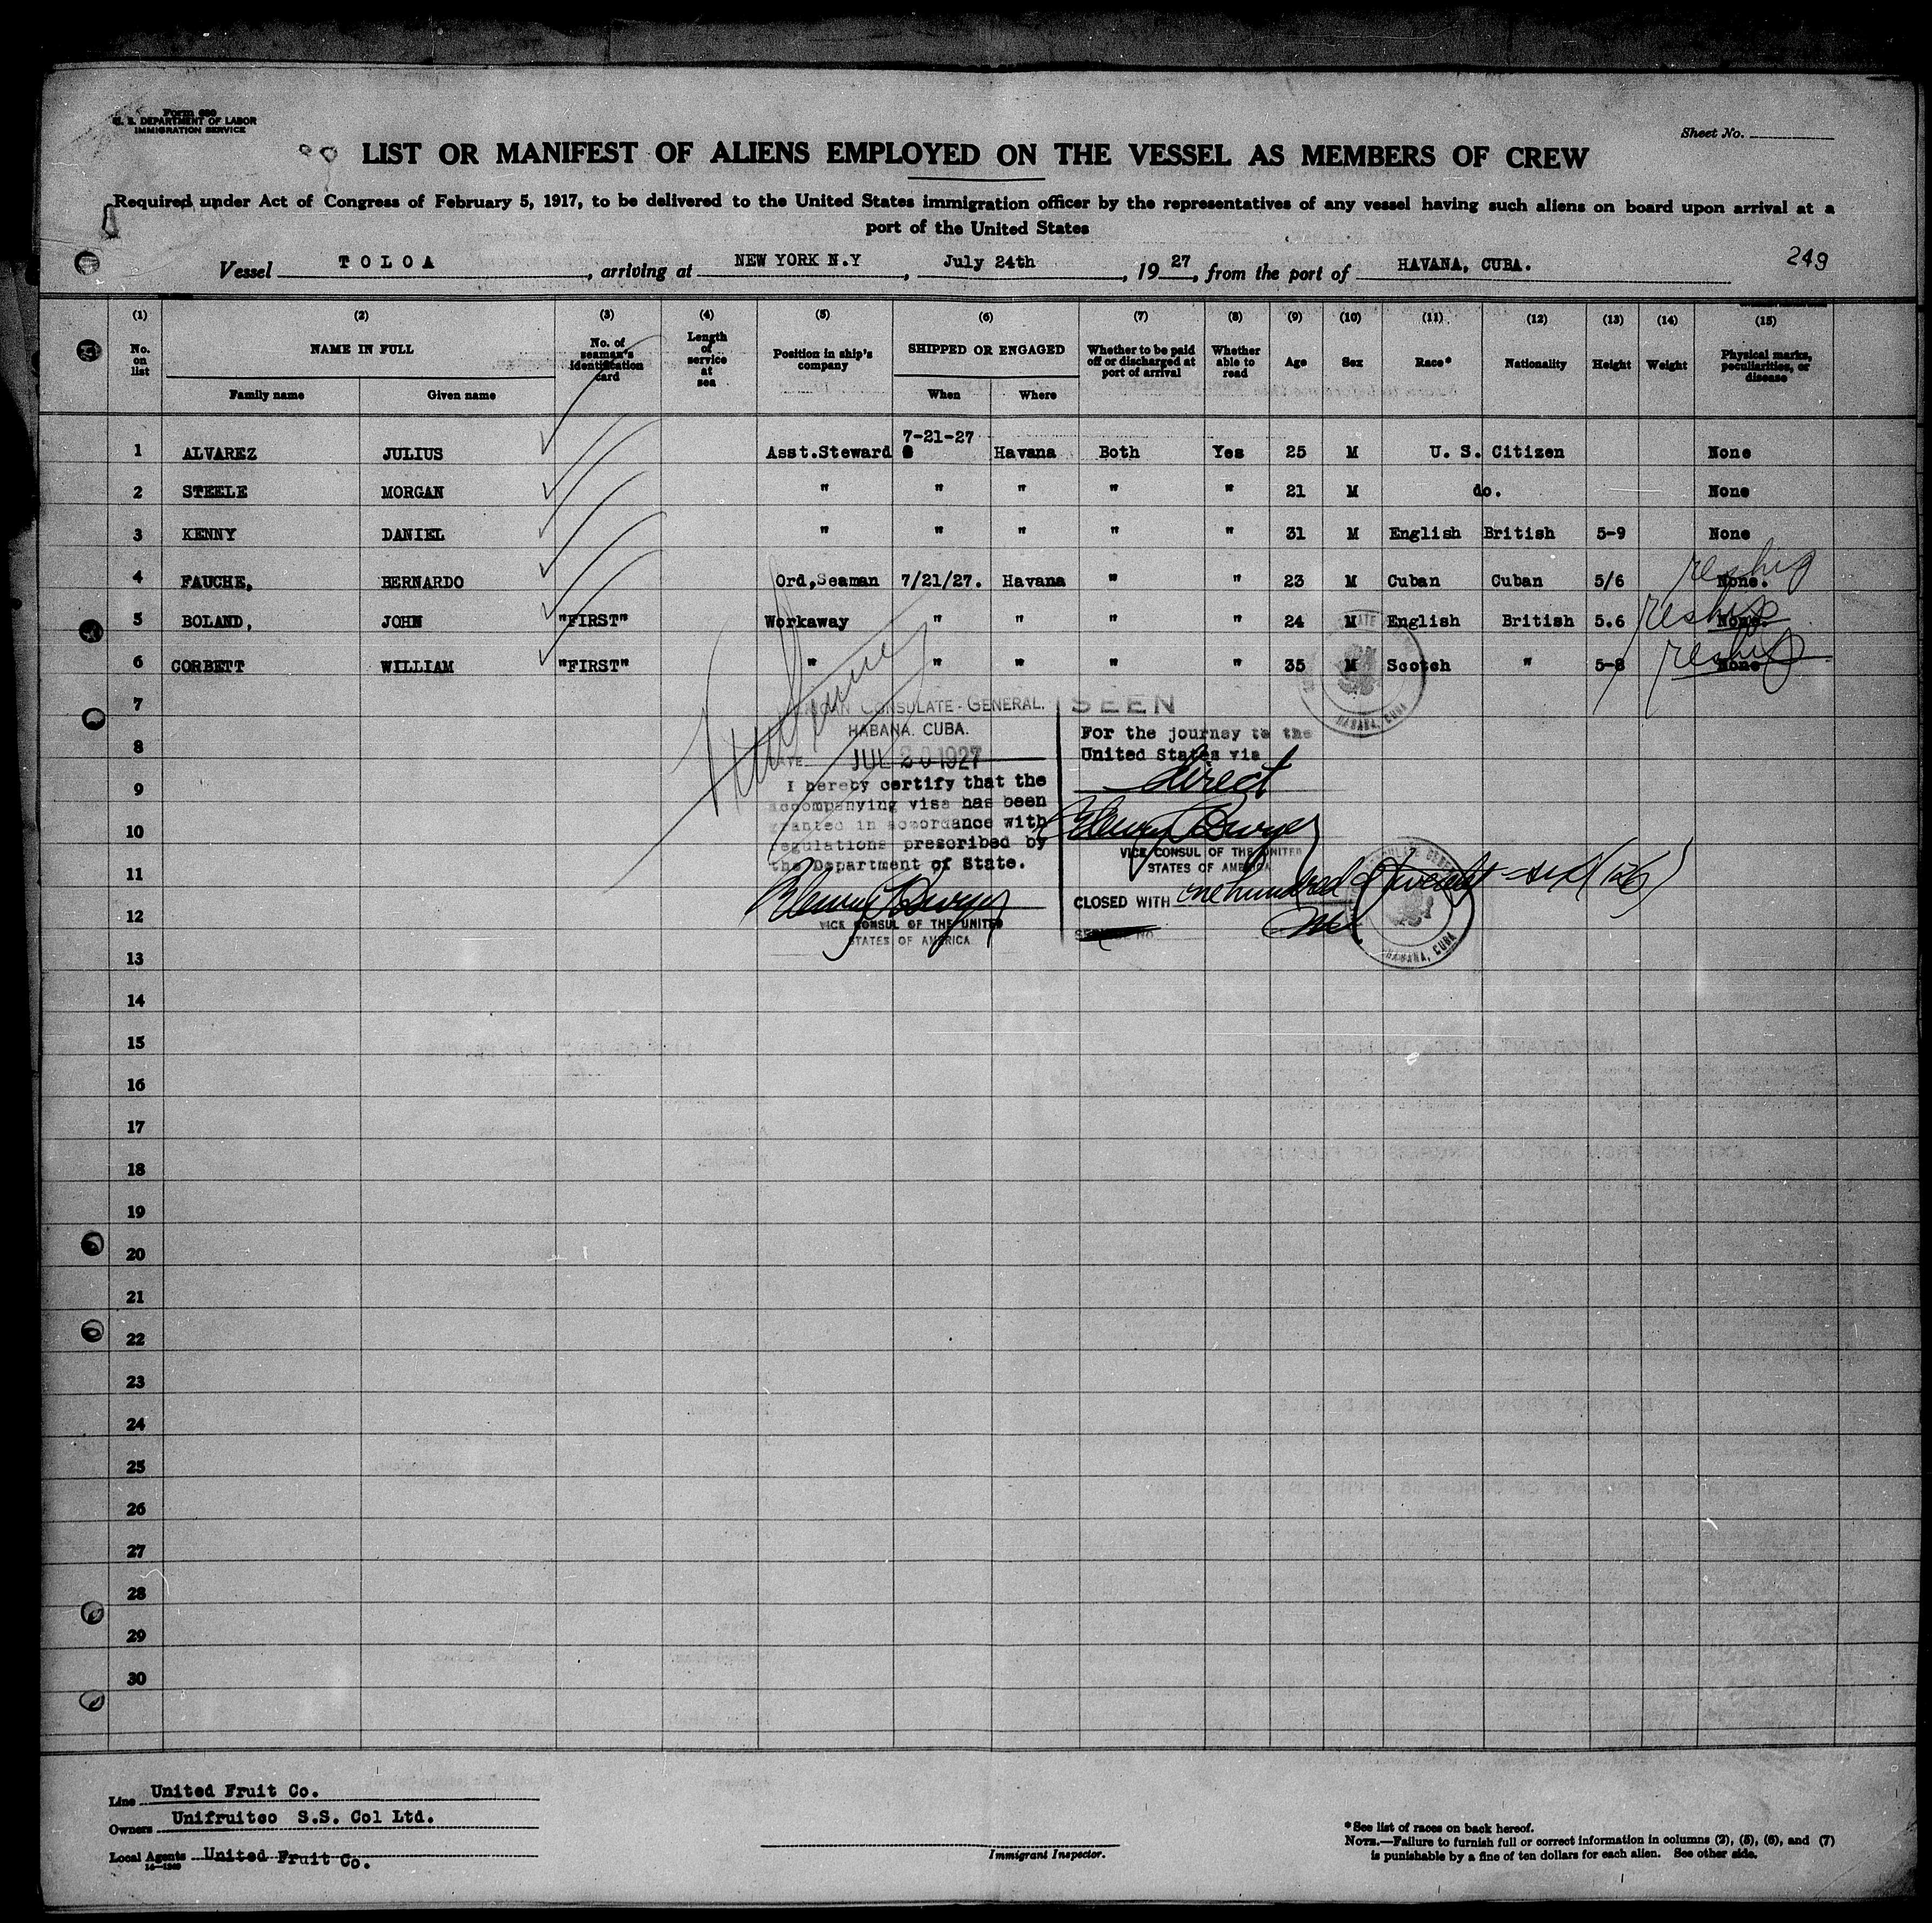 Form 680
U. S. DEPARTMENT OF LABOR
IMMIGRATION SERVICE
Sheet No.
LIST OR MANIFEST OF ALIENS EMPLOYED ON THE VESSEL AS MEMBERS OF CREW
Required under Act of Congress of February 5, 1917, to be delivered to the United States immigration officer by the representatives of any vessel having such aliens on board upon arrival at a
port of the United States
Vessel TOLOA, arriving at NEW YORK N.Y, July 24th, 1927, from the port of HAVANA, CUBA. 249
(1) (2) (3) (4) (5) (6) (7) (8) (9) (10) (11) (12) (13) (14) (15)
No. on list NAME IN FULL Family name Given name No. of seaman's identification card Length of service at sea Position in ship's company SHIPPED OR ENGAGED When Where Whether to be paid off or discharged at port of arrival Whether able to read Age Sex Race* Nationality Height Weight Physical marks, peculiarities, or disease
1 ALVAREZ JULIUS Asst.Steward 7-21-27 Havana Both Yes 25 M U. S. Citizen None
2 STEELE MORGAN " " " " " 21 M do. None
3 KENNY DANIEL " " " " " 31 M English British 5-9 None
4 FAUCHE, BERNARDO Ord,Seaman 7/21/27. Havana " " 23 M Cuban Cuban 5/6 None. reship
5 BOLAND, JOHN "FIRST" Workaway " " " " 24 M English British 5.6 None. reship
6 CORBETT WILLIAM "FIRST" " " " " " 35 M Scotch " 5-8 None reship
7
8
9
10
11
12
13
14
15
16
17
18
19
20
21
22
23
24
25
26
27
28
29
30
AMERICAN CONSULATE-GENERAL.
HABANA. CUBA.
DATE JUL 20 1927
I hereby certify that the
accompanying visa has been
granted in accordance with
regulations prescribed by
the Department of State.
VICE CONSUL OF THE UNITED
STATES OF AMERICA
SEEN
For the journey to the
United States via
direct
VICE CONSUL OF THE UNITED
STATES OF AMERICA
CLOSED WITH one hundred & twenty-six (126)
HABANA, CUBA
HABANA, CUBA
Line United Fruit Co.
Owners Unifruitco S.S. Col Ltd.
Local Agents United Fruit Co.
Immigrant Inspector.
*See list of races on back hereof.
NOTE.—Failure to furnish full or correct information in columns (2), (5), (6), and (7)
is punishable by a fine of ten dollars for each alien. See other side.